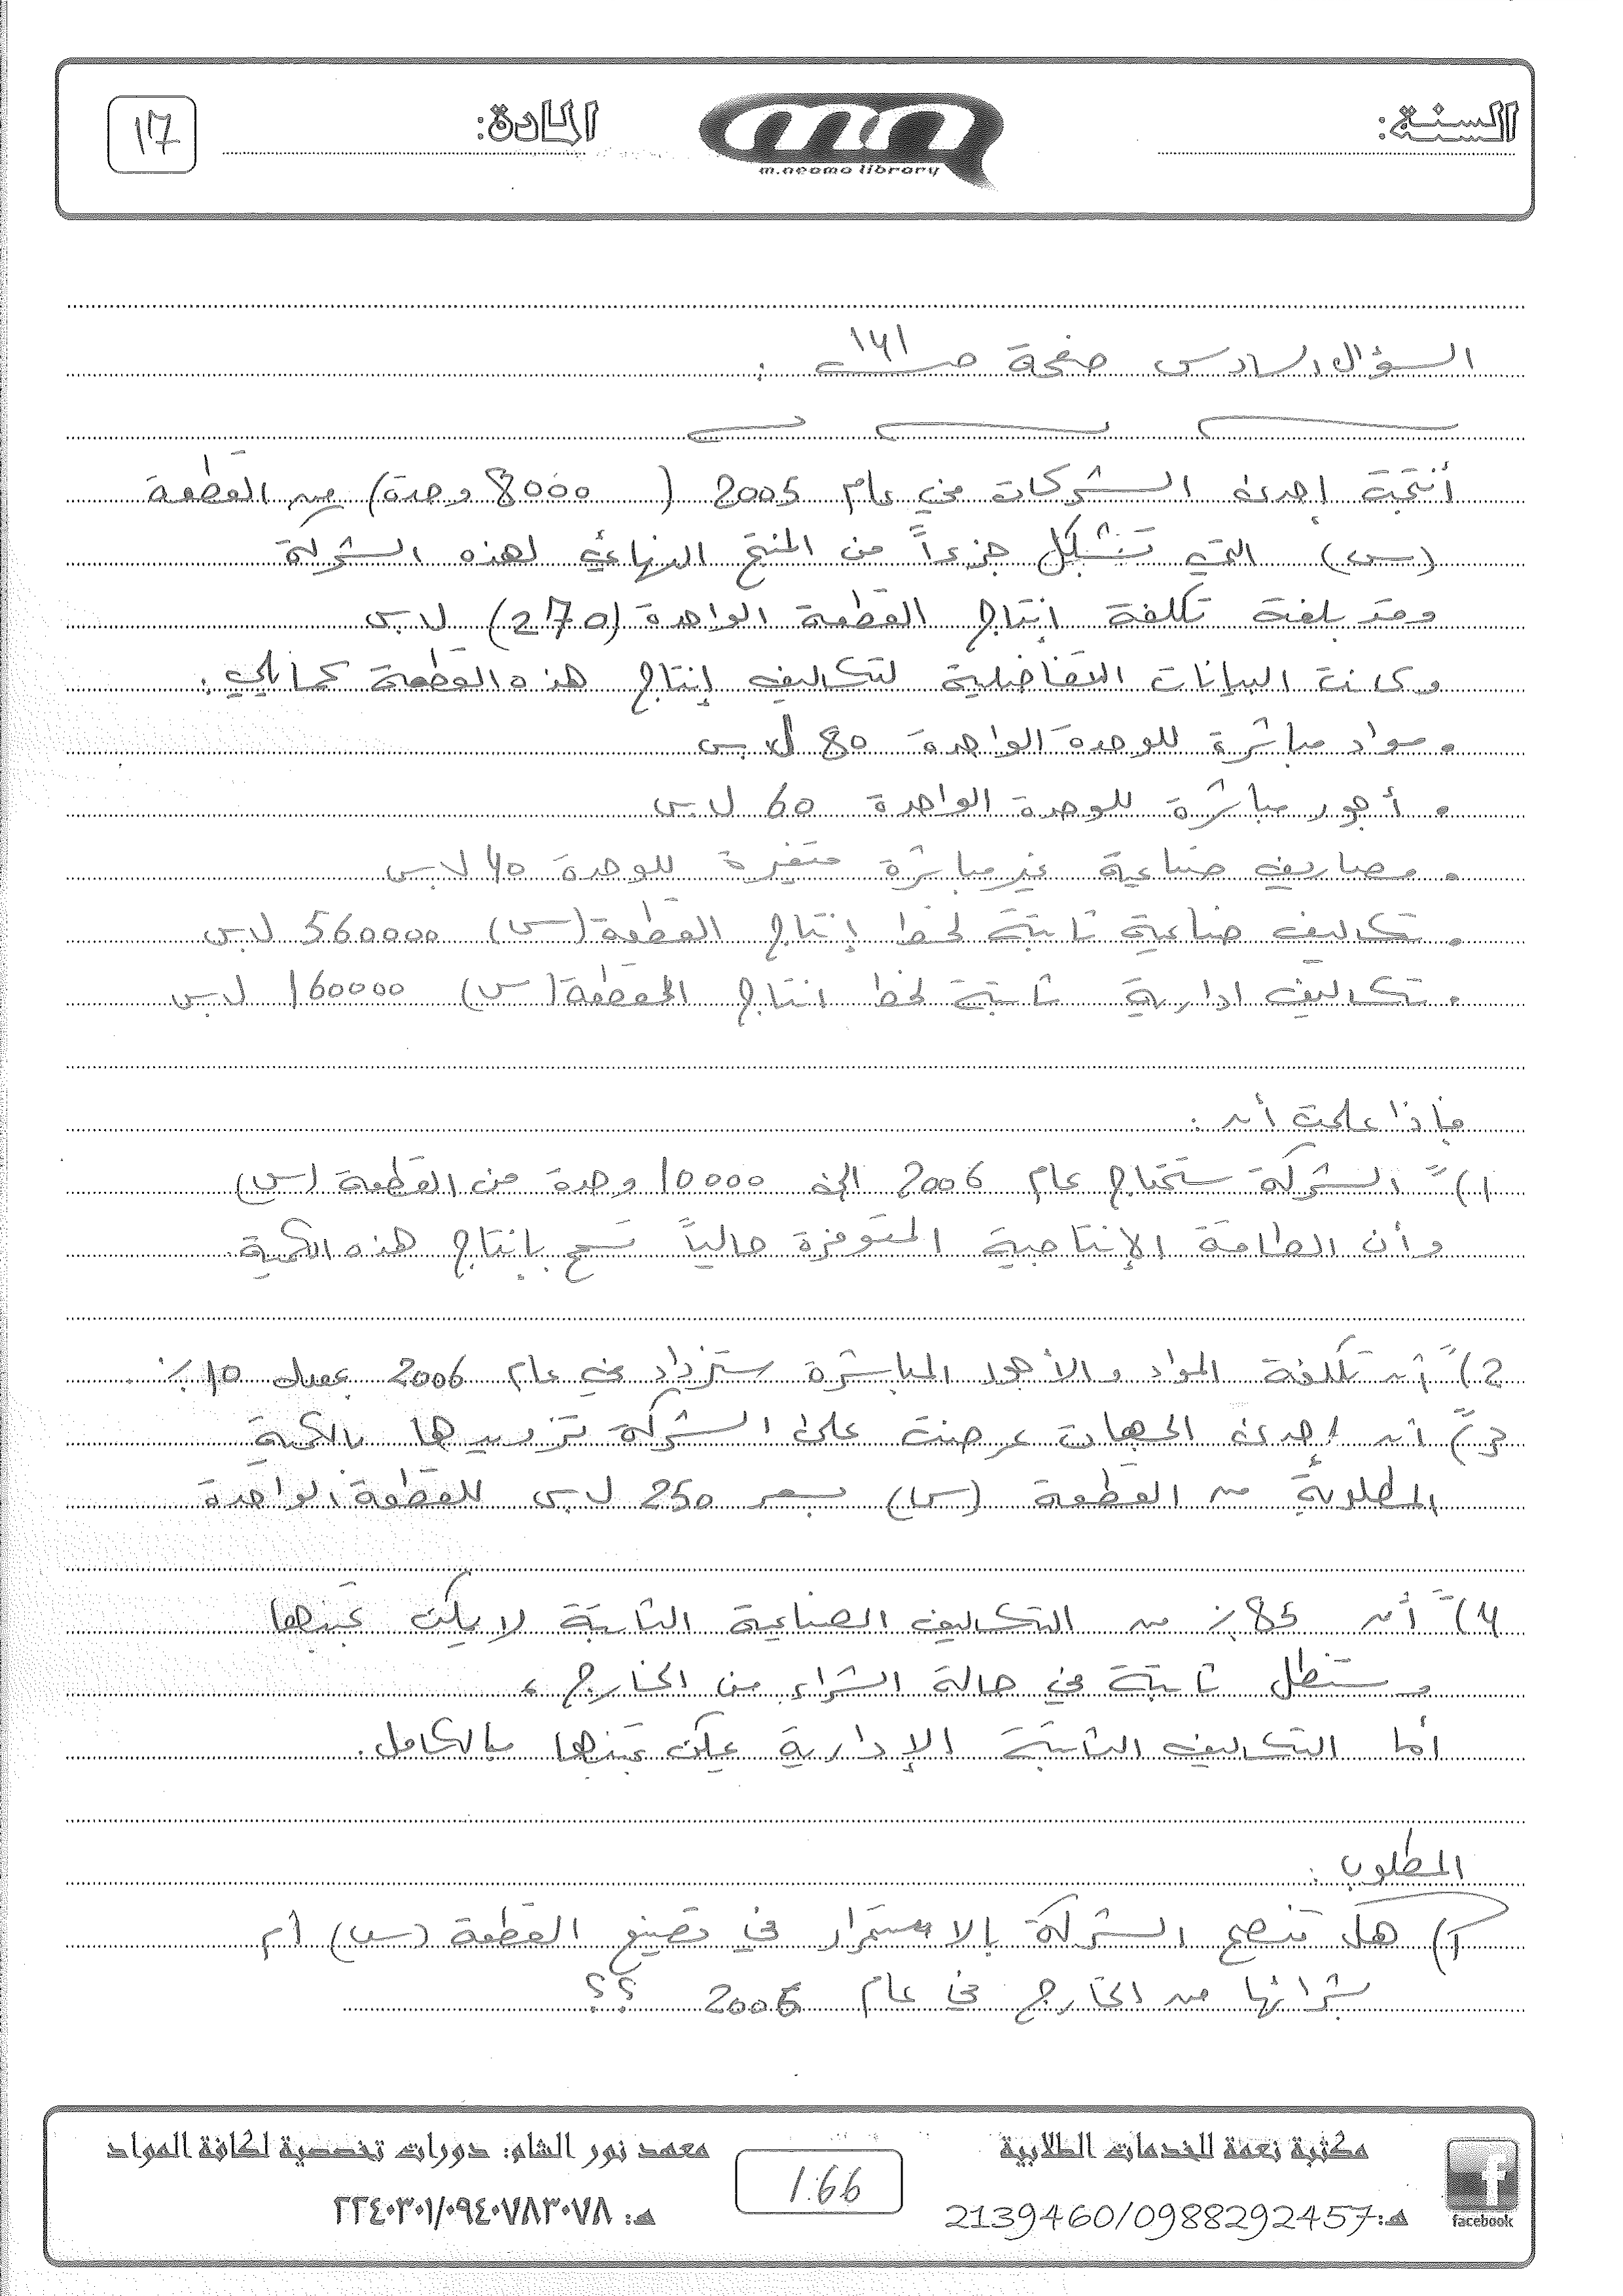 السنة:
m.neama library
المادة:
17
السؤال السادس صفحة ص ١٤١ :
أنتجت إحدى الشركات في عام 2005 ( 8000 وحدة) من القطعة
(س) التي تشكل جزءاً من المنتج النهائي لهذه الشركة
وقد بلغت تكلفة إنتاج القطعة الواحدة (270) ل.س
وكانت البيانات التفاضلية لتكاليف إنتاج هذه القطعة كمايلي:
• مواد مباشرة للوحدة الواحدة 80 ل.س
• أجور مباشرة للوحدة الواحدة 60 ل.س
• مصاريف صناعية غير مباشرة متغيرة للوحدة 40 ل.س
• تكاليف صناعية ثابتة لخط إنتاج القطعة (س) 560000 ل.س
• تكاليف ادارية ثابتة لخط انتاج القطعة (س) 160000 ل.س
فإذا علمت أن :
1) الشركة ستحتاج عام 2006 الى 10000 وحدة من القطعة (س)
وأن الطاقة الإنتاجية المتوفرة حالياً تسمح بإنتاج هذه الكمية.
2) أن تكلفة المواد والأجور المباشرة ستزداد في عام 2006 بمعدل 10 %.
3) أن إحدى الجهات عرضت على الشركة تزويدها بالكمية
المطلوبة من القطعة (س) بسعر 250 ل.س للقطعة الواحدة
4) أن 85 % من التكاليف الصناعية الثابتة لا يمكن تجنبها
وستظل ثابتة في حالة الشراء من الخارج ،
أما التكاليف الثابتة الإدارية يمكن تجنبها بالكامل.
المطلوب :
1) هل تنصح الشركة بالاستمرار في تصنيع القطعة (س) أم
بشرائها من الخارج في عام 2006 ؟؟
facebook
مكتبة نعمة للخدمات الطلابية
هـ: 2139460/0988292457
166
معهد نور الشام: دورات تخصصية لكافة المواد
هـ: ٢٢٤٠٣٠١/٠٩٤٠٧٨٣٠٧٨